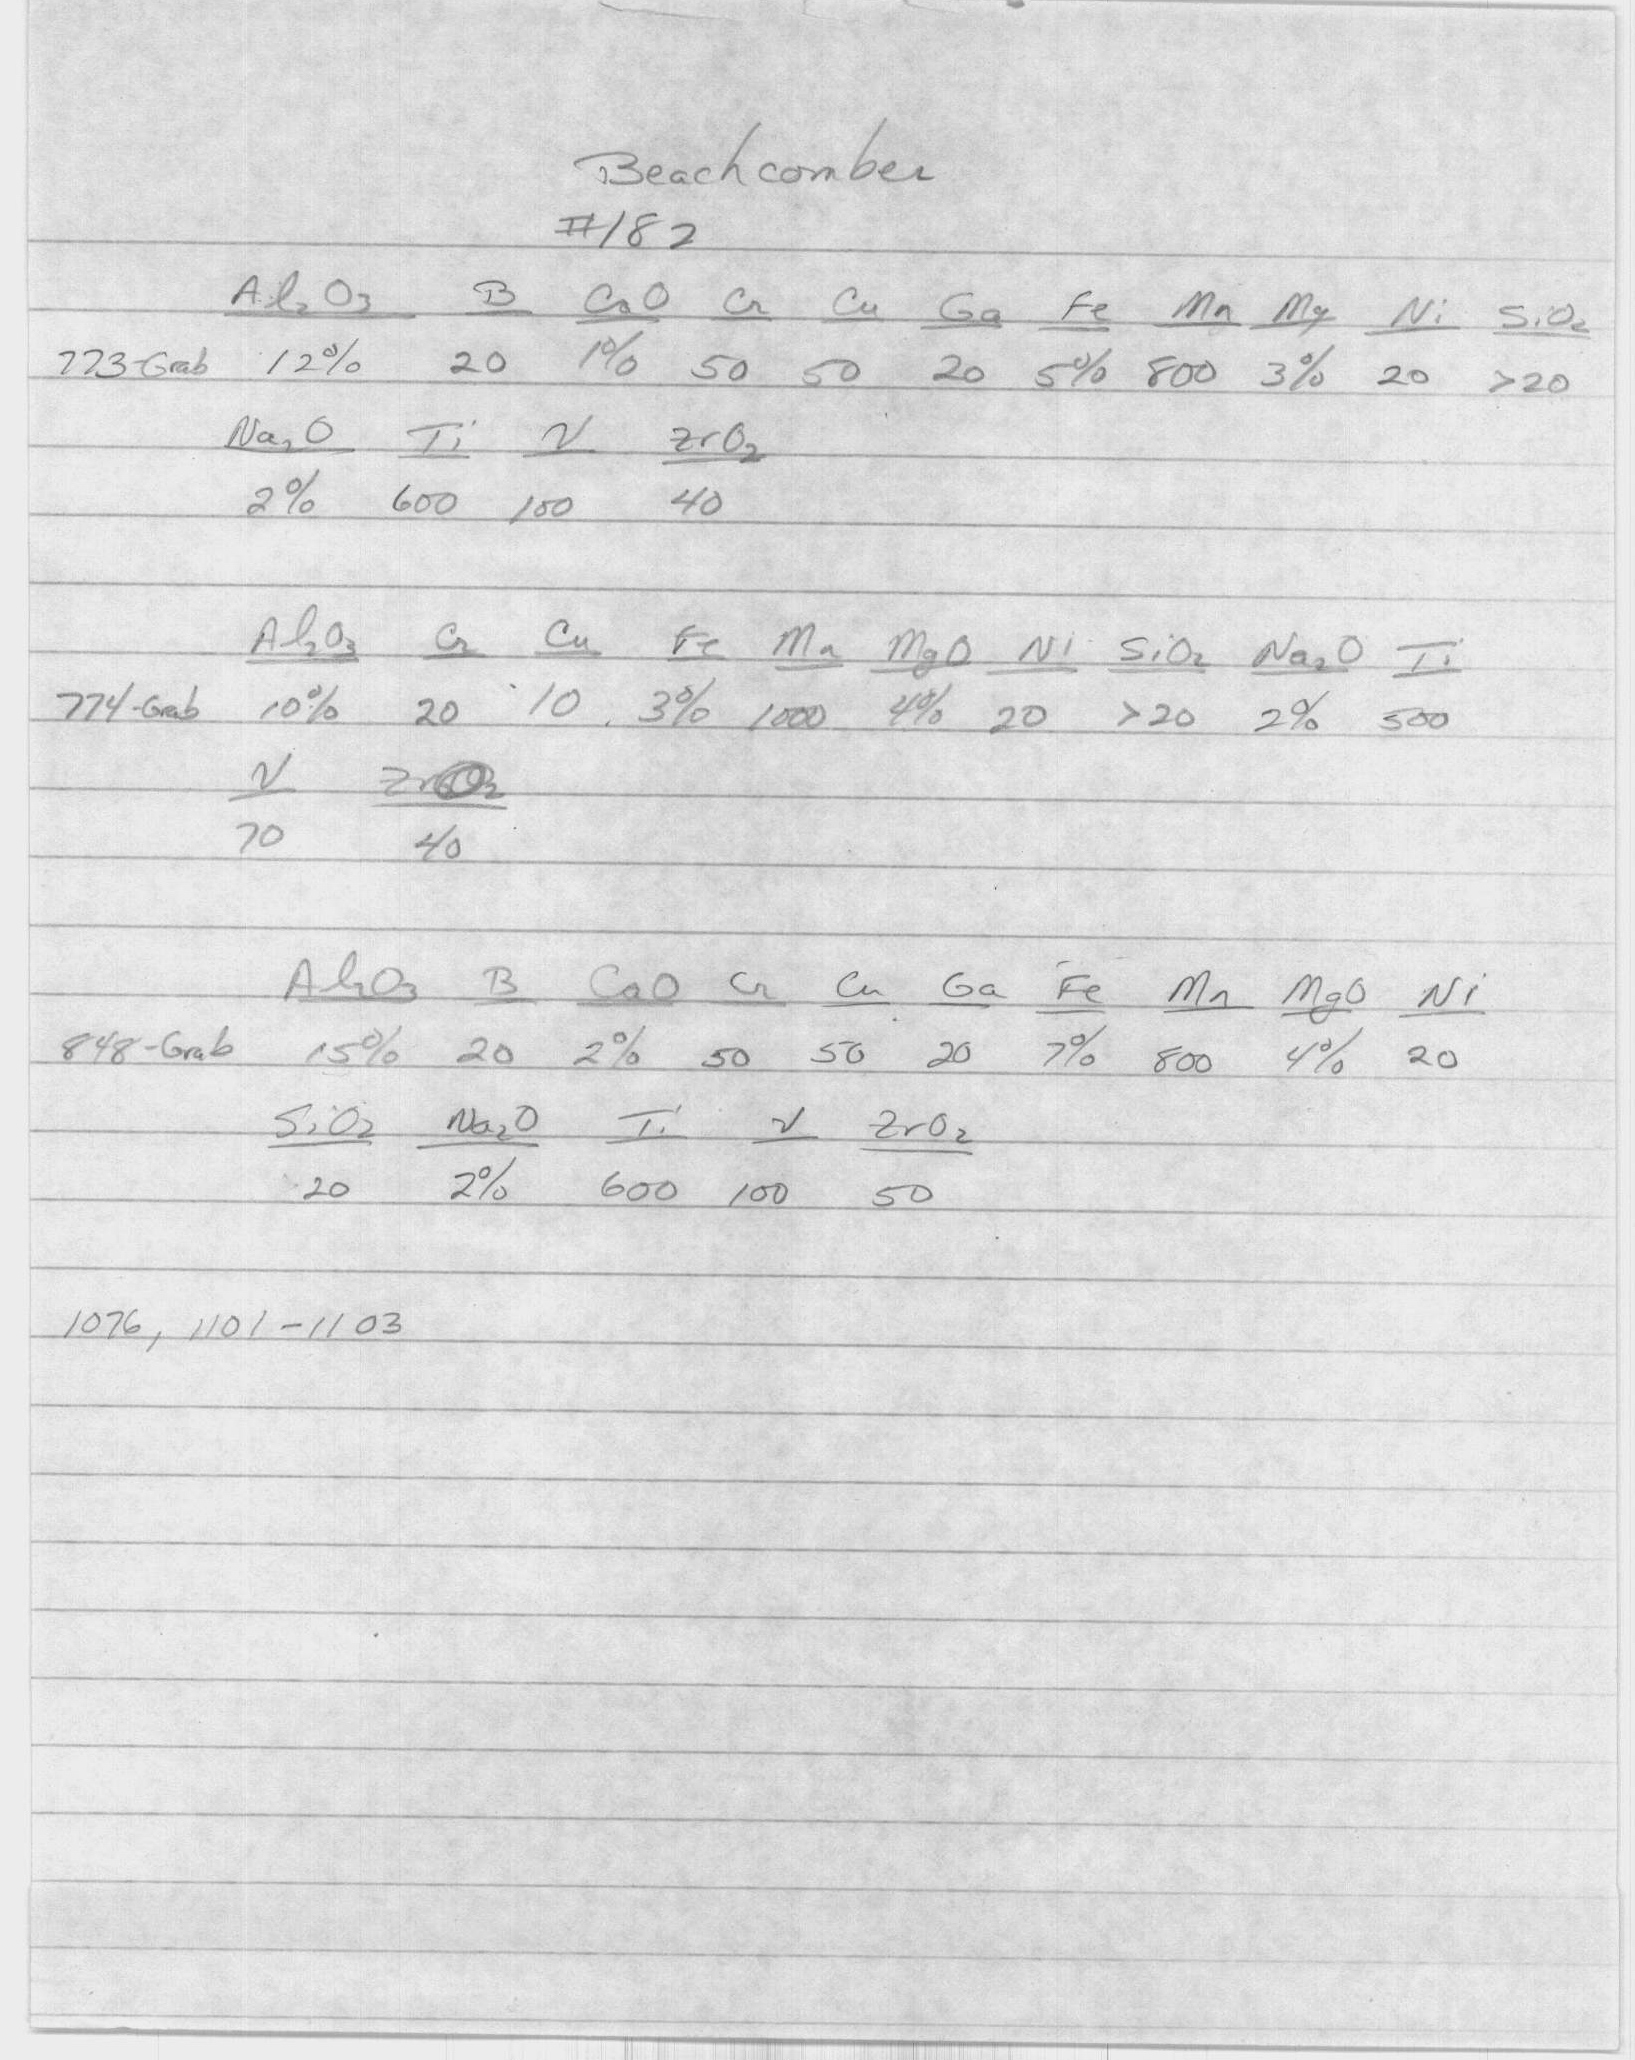 Beachcomber
#182
Al2O3 B CaO Cr Cu Ga Fe Mn Mg Ni SiO2
773-Grab 12% 20 1% 50 50 20 5% 800 3% 20 >20
Na2O Ti V ZrO2
2% 600 100 40
Al2O3 Cr Cu Fe Mn MgO Ni SiO2 Na2O Ti
774-Grab 10% 20 10 3% 1000 4% 20 >20 2% 500
V ZrO2
70 40
Al2O3 B CaO Cr Cu Ga Fe Mn MgO Ni
848-Grab 15% 20 2% 50 50 20 7% 800 4% 20
SiO2 Na2O Ti V ZrO2
20 2% 600 100 50
1076, 1101-1103